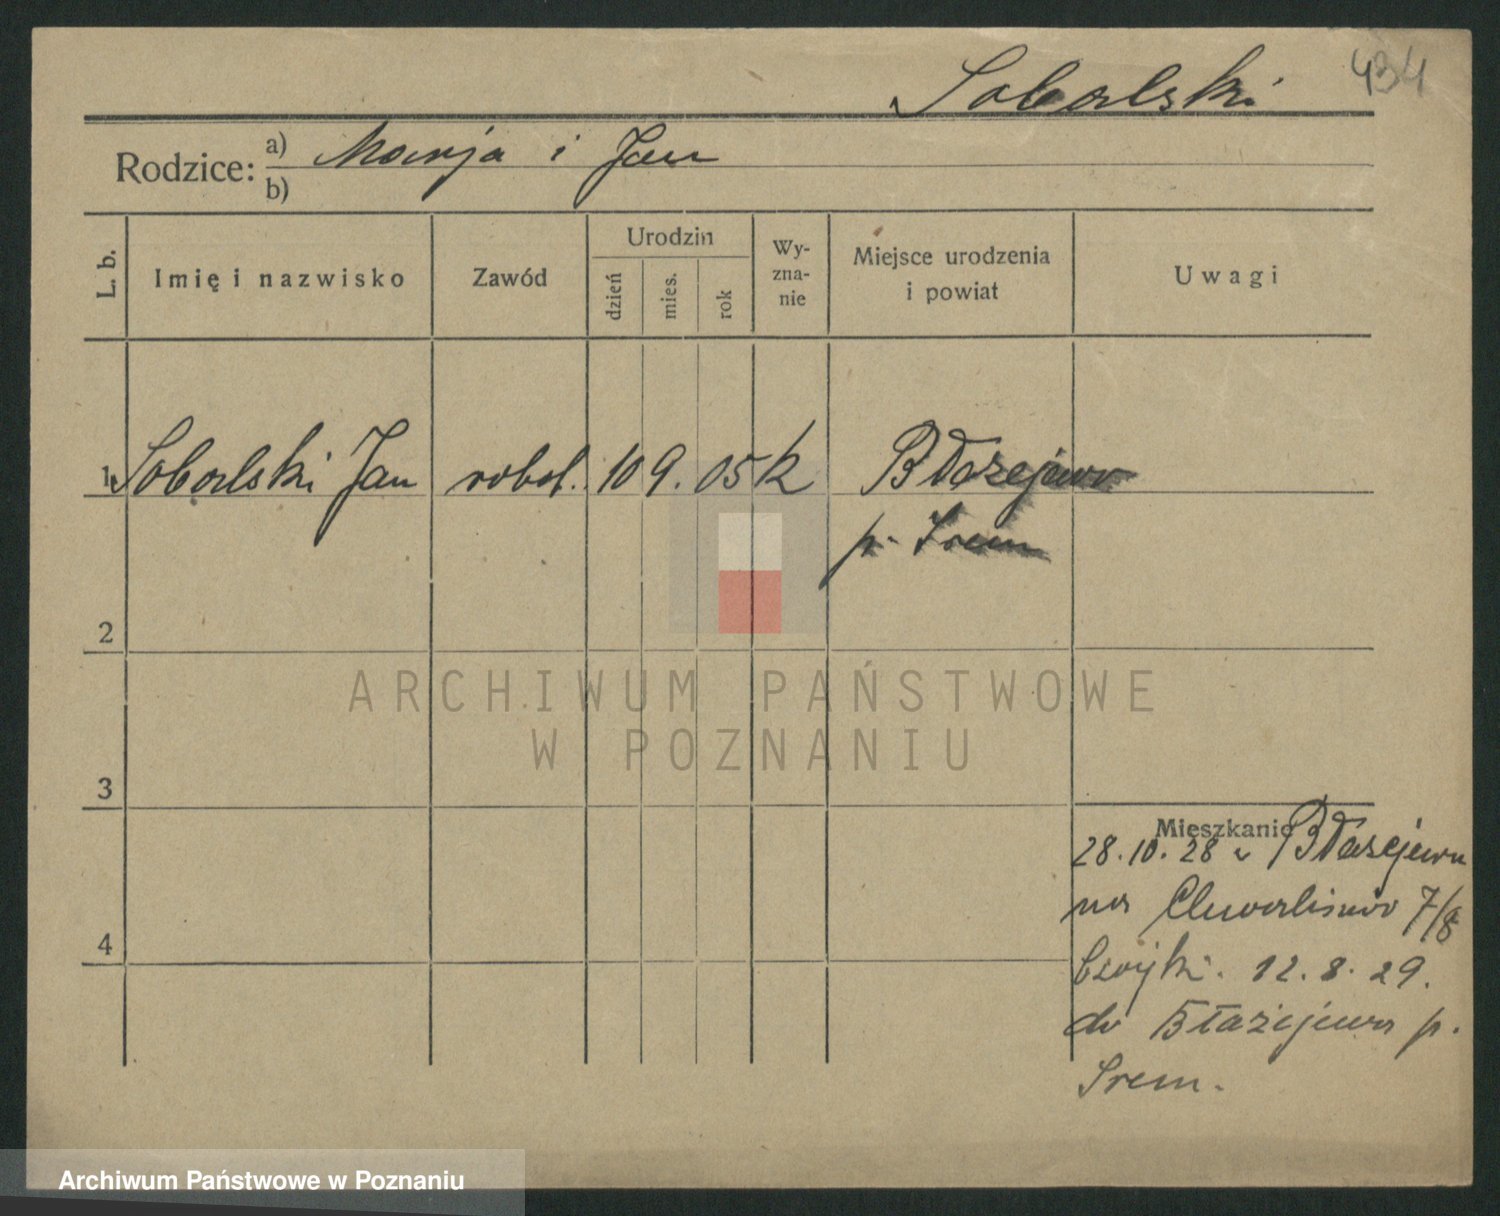 434
Sobalski
Rodzice: a) Marja i Jan
b)
L. b. Imię i nazwisko Zawód Urodzin dzień mies. rok Wy-zna-nie Miejsce urodzenia i powiat Uwagi
1 Sobalski Jan robot. 10 9. 05 k Błażejewo
p. Śrem
2
3
Mieszkanie
28.10.28 z Błażejewa
na 7/8
4
12.8.29.
do Błażejewa p.
Śrem.
ARCHIWUM PAŃSTWOWE
W POZNANIU
Archiwum Państwowe w Poznaniu